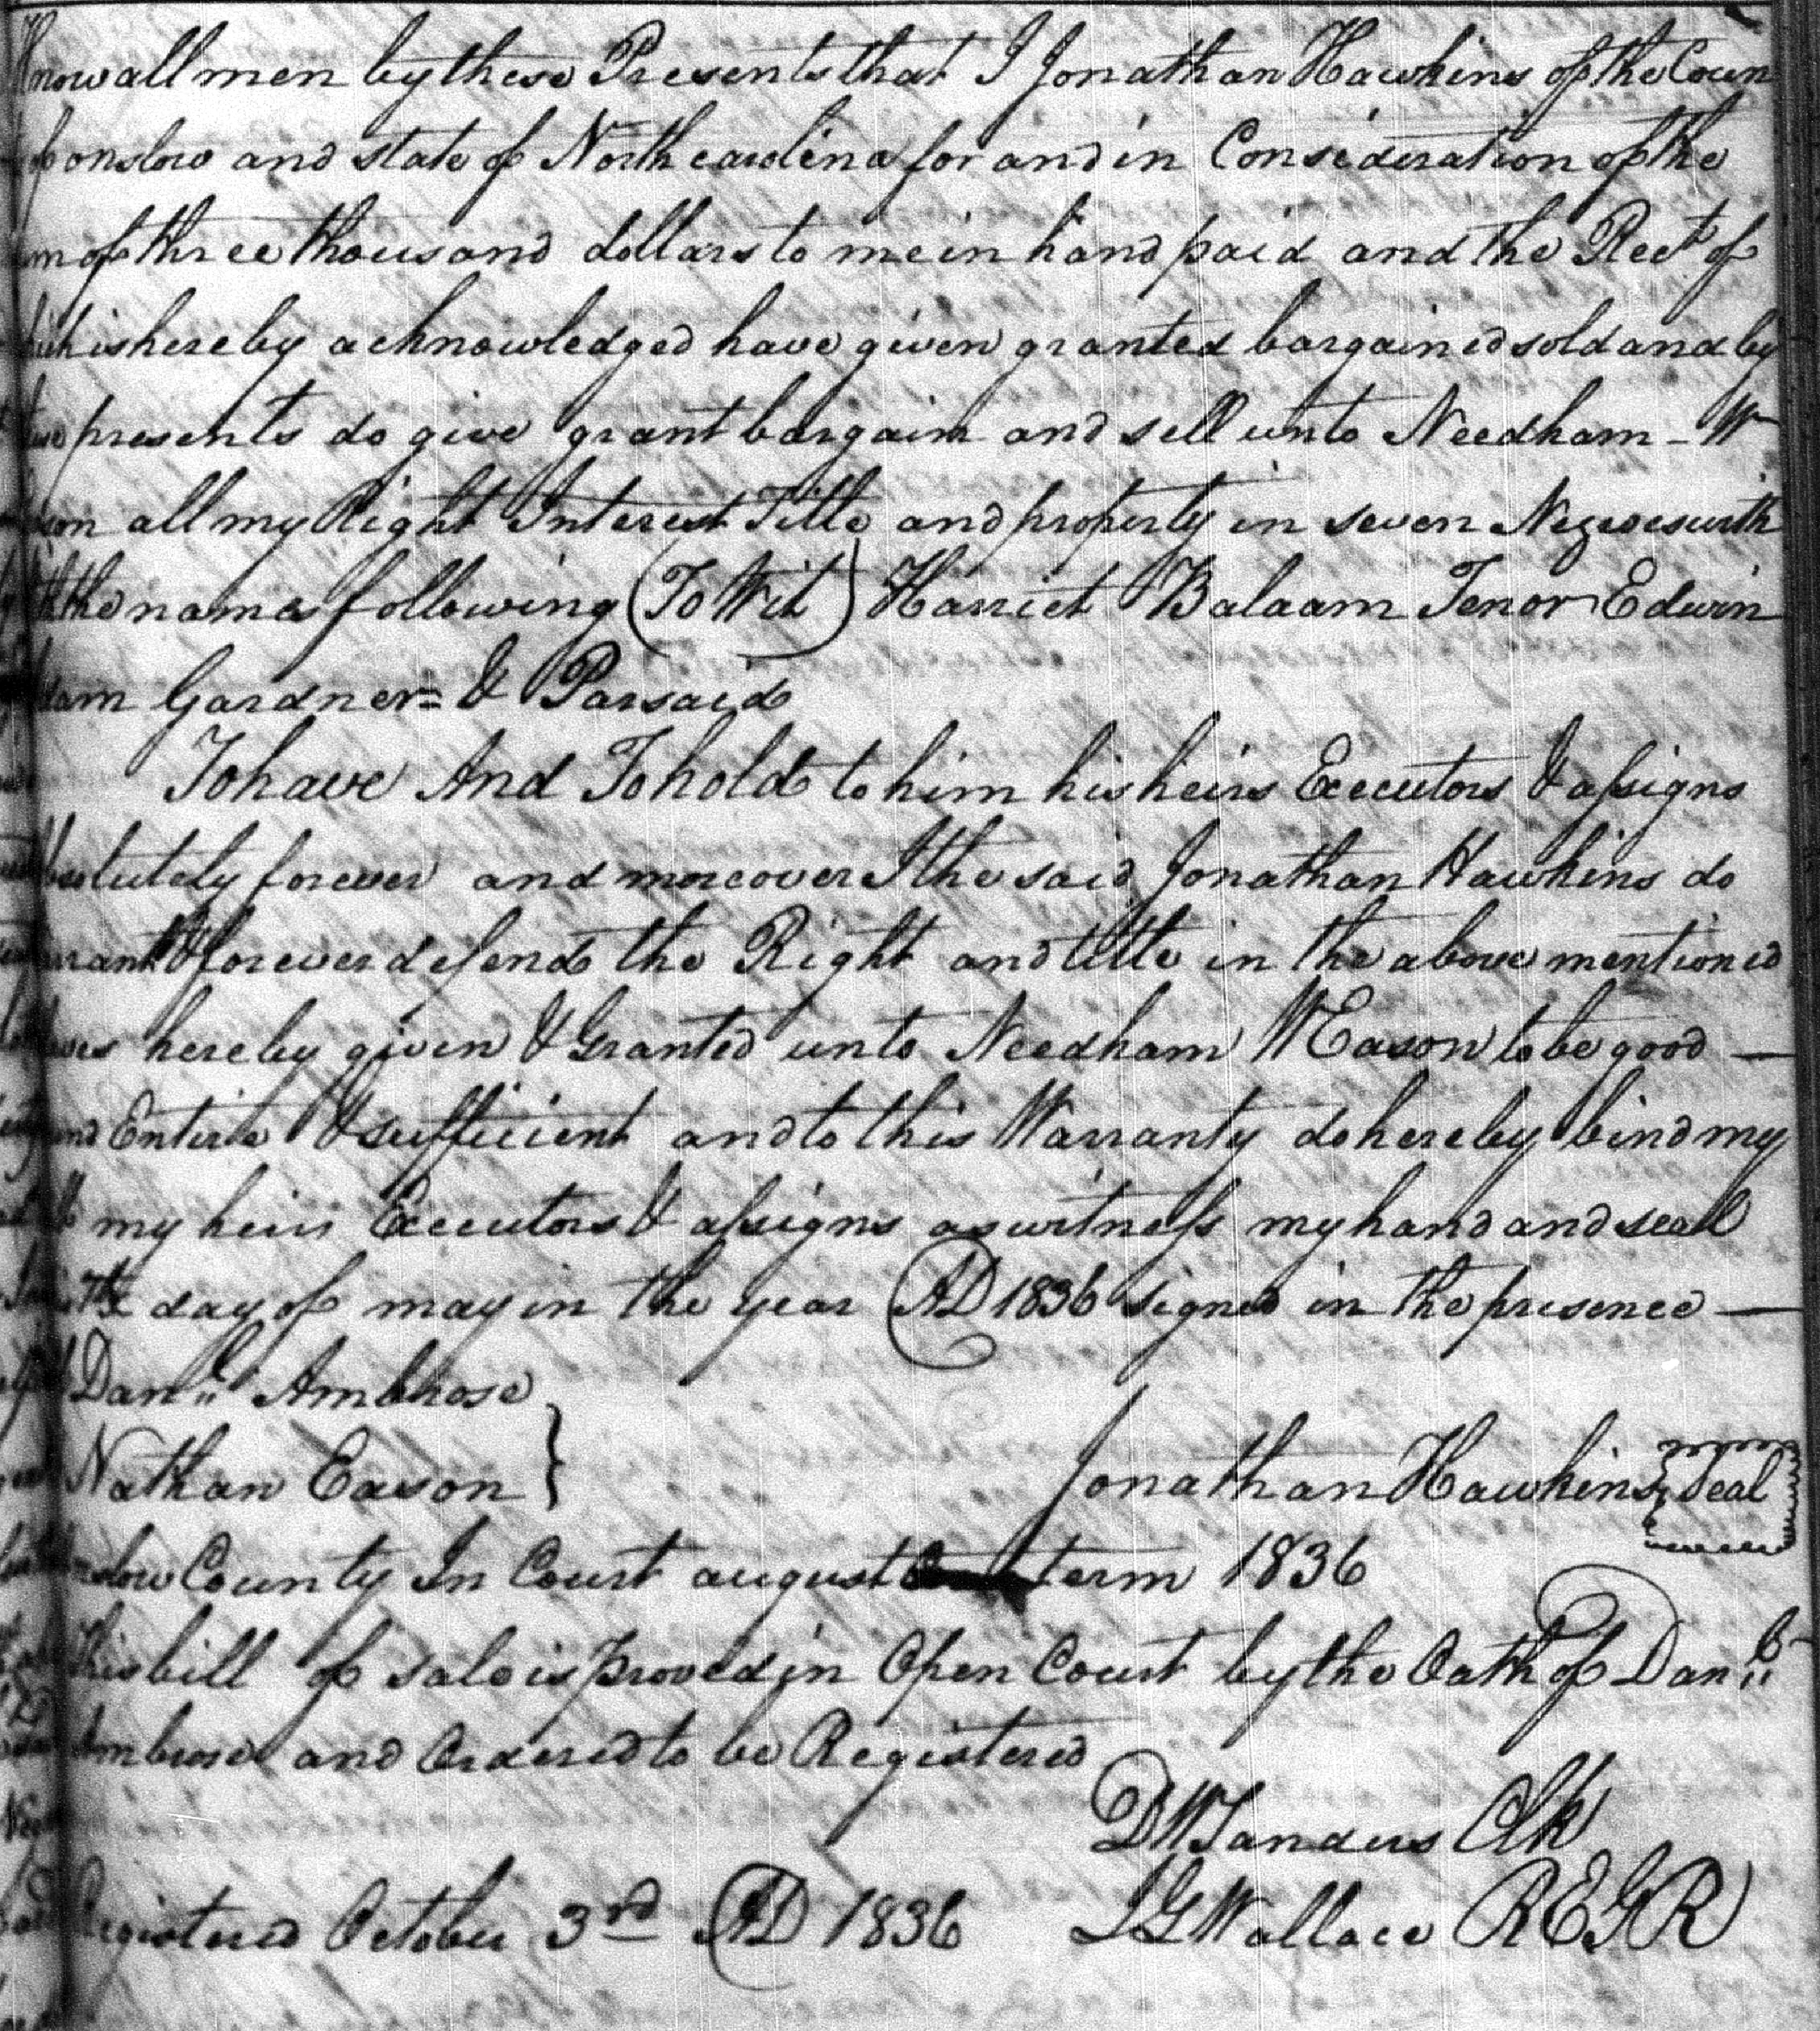 Know all men by these Presents that I Jonathan Hawkins of the Coun
of onslow and state of North carolina for and in Consideration of the
um of three thousand dollars to me in hand paid and the Rect of
hich is hereby acknowledged have given granted bargained sold and by
these presents do give grant bargain and sell unto Needham - W
son all my Right Interest Title and property in seven Negroes with
the names following (To Wit) Harriet Balaam Tenor Edwin
dam Gardner = & Parsaid
To have And To hold to him his heirs Executors & assigns
absolutely forever and moreover I the said Jonathan Hawkins do
arrant & forever defend the Right and title in the above mentioned
hereby given & Granted unto Needham W Eason to be good —
and Entire & sufficient and to this Warranty do hereby bind my
my heirs Executors & assigns as witness my hand and seal
day of may in the year AD 1836 signed in the presence —
Danll Ambrose
Nathan Eason }
Jonathan Hawkins Seal
onslow County In Court august term 1836
This bill of sale is proved in Open Court by the Oath of Danll
Ambrose and Ordered to be Registered
D W Sanders Clk
Registered October 3rd AD 1836 L G Wallace REGR